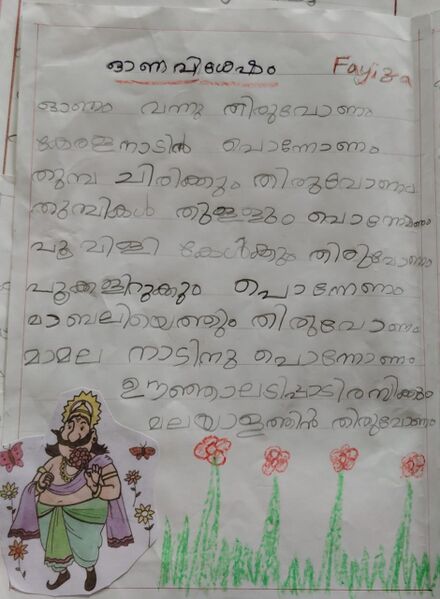 ഓണവിശേഷം
Fayiza
ഓണം വന്നു തിരുവോണം
കേരളനാടിൻ പൊന്നോണം
തുമ്പ ചിരിക്കും തിരുവോണം
തുമ്പികൾ തുള്ളും പൊന്നോണം
പൂവിളി കേൾക്കും തിരുവോണം
പൂക്കളിറുക്കും പൊന്നേണം
മാബലിയെത്തും തിരുവോണം
മാമല നാടിനു പൊന്നോണം
ഊഞ്ഞാലടിപ്പാടിരമ്പിക്കും
മലയാളത്തിൻ തിരുവോണം